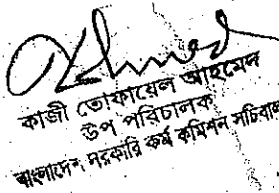 Ahmed
কাজী তোফায়েল আহমেদ
উপ পরিচালক
বাংলাদেশ সরকারি কর্ম কমিশন সচিবালয়